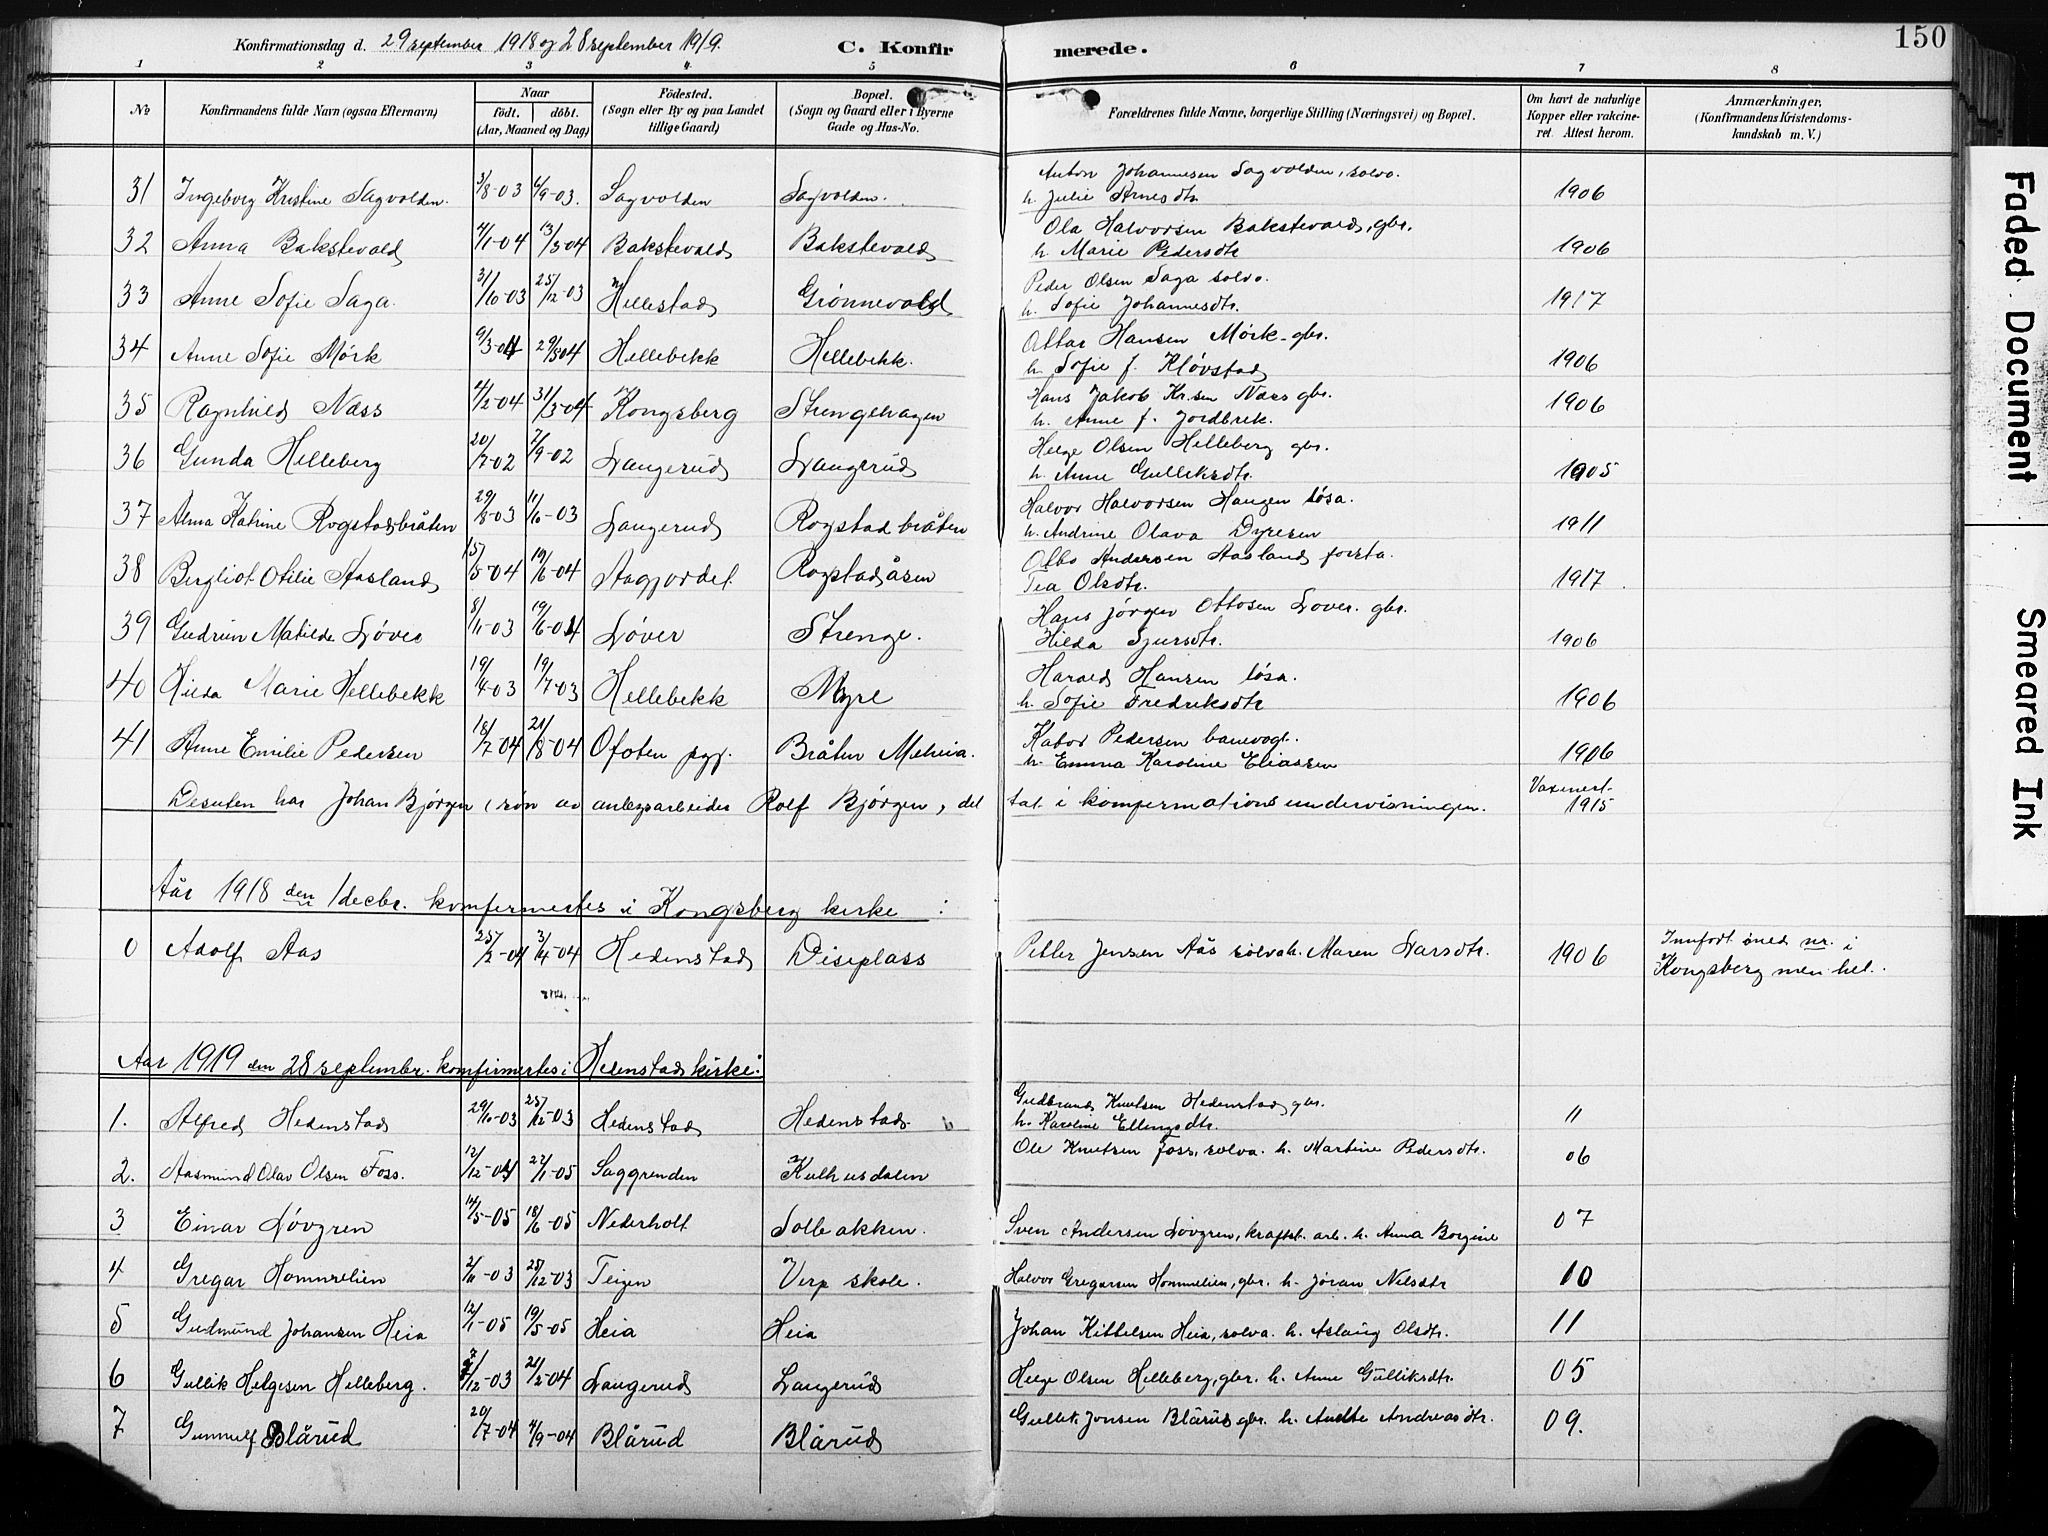 Konfirmationsdag d. 29 september 1918 og 28 september 1919. C. Konfirmerede. 150
1 2 3 4 5 6 7 8
No Konfirmandens fulde Navn (ogsaa Efternavn) Naar født. døbt. (Aar, Maaned og Dag) Fødested. (Sogn eller By og paa Landet tillige Gaard) Bopæl. (Sogn og Gaard eller i Byerne Gade og Hus-No. Forældrenes fulde Navne, borgerlige Stilling (Næringsvei) og Bopæl. Om havt de naturlige Kopper eller vakcineret. Attest herom. Anmærkninger, (Konfirmandens Kristendomskundskab m. V.)
Anton Johannesen Sagvolden, selve.
31 Ingeborg Kristine Sagvolden. 3/8-03 6/9-03. Sagvolden Sagvolden. h. Julie Arnesdtr. 1906
Ola Halvorsen Bakstevald, gbr.
32 Anna Bakstevald 4/1-04 13/3-04 Bakstevald Bakstevald h. Marie Pedersdtr 1906
Peder Olsen Saga selve.
33 Anne Sofie Saga. 31/10-03 25/12-03 Hellestad Grønnevold h. Sofie Johannesdtr. 1917
Ottar Hansen Mørk gbr.
34 Anne Sofie Mørk 9/3-04 29/5 04 Hellebekk Hellebekk. h. Sofie f. Kløvstad 1906
Hans Jakob Kr.sen Næss gbr.
35 Ragnhild Næss 4/2-04 31/3-04 Kongsberg Strengehagen h. Anne f. Jordbrek. 1906
Helge Olsen Helleberg gbr.
36 Gunda Helleberg 20/7-02 7/9-02 Langerud Langerud h. Anne Gulliksdtr. 1905
Halvor Halvorsen Haugen løsa.
37 Alma Katrine Rogstadbråten 29/8-03 11/10-03 Langerud Rogstadbråten h. Andrine Olava Dyresen 1911
Otto Andersen Aasland forsta.
38 Bergliot Otilie Aasland 15/5-04 19/6-04 Aagjordet Rogstadåsen Tea Olsdtr. 1917
Hans Jørgen Ottosen Løver. gbr.
39 Gudrun Matilde Løver 8/11-03 19/6-04 Løver Strenge. Hilda Sjursdtr. 1906
Harald Hansen løsa.
40 Hilda Marie Hellebekk 19/4-03 19/7-03 Hellebekk Myre h. Sofie Fredriksdtr 1906
Kator Pedersen banevogt.
41 Anne Emilie Pedersen 18/7-04 21/8-04 Ofoten pgj. Bråten Meheia. h. Emma Karoline Eliassen 1906
Desuten har Johan Bjørgen (søn av anlegsarbeider Rolf Bjørgen, deltat i konfermationsundervisningen. Vaxinert 1915
Aår 1918 den 1 decbr. komfermertes i Kongsberg kirke:
0 Adolf Aas 25/2-04 3/4-04 Hedenstad Diseplass Petter Jensen Aås selva h. Maren Larsdtr. 1906 Innført med nr. i
Kongsberg men hel.
Aar 1919 den 28 septembr. komfirmertes i Hedenstad kirke:
Gudbrand Knutsen Hedenstad gbr.
1. Alfred Hedenstad 29/10-03 25/12-03 Hedenstad Hedenstad h. Karoline Ellingsdtr. 11
2. Aasmund Olav Olsen Foss. 12/12-04 22/1-05 Saggrenden Kulhusdalen Ole Knutsen Foss, selva. h. Martine Pedersdtr. 06
3 Einar Løvgren 14/5-05 18/6-05 Nederholt Solbakken. Sven Andersen Løvgren, kraftst. arb. h. Anna Borgine 07
4 Gregar Hommelien 2/11-03 25/12-03 Teigen Verp skole. Halvor Gregarsen Hommelien, gbr. h. Jøran Nilsdtr 10
5 Gudmund Johansen Heia 12/1-05 19/5-05 Heia Heia Johan Kittelsen Heia, selva. h. Aslaug Olsdtr. 11
6 Gullik Helgesen Helleberg. 7/12-03 21/2-04 Langerud Langerud Helge Olsen Helleberg, gbr. h. Anne Gulliksdtr. 05
7 Gunnulf Blårud 20/7-04 4/9-04 Blårud Blårud Gullik Jonsen Blårud gbr. h. Andreasdtr. 09.
Faded Document
Smeared Ink